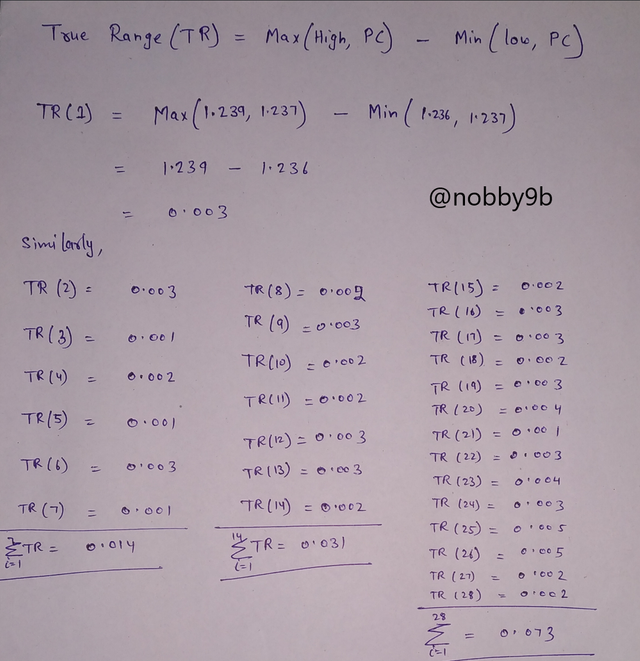 True Range (TR) = Max(High, PC) - Min(low, PC)
TR(1) = Max(1.239, 1.237) - Min(1.236, 1.237)
= 1.239 - 1.236
= 0.003
@nobby9b
Similarly,
TR(2) = 0.003
TR(3) = 0.001
TR(4) = 0.002
TR(5) = 0.001
TR(6) = 0.003
TR(7) = 0.001
7
∑ TR = 0.014
i=1
TR(8) = 0.002
TR(9) = 0.003
TR(10) = 0.002
TR(11) = 0.002
TR(12) = 0.003
TR(13) = 0.003
TR(14) = 0.002
14
∑ TR = 0.031
i=1
TR(15) = 0.002
TR(16) = 0.003
TR(17) = 0.003
TR(18) = 0.002
TR(19) = 0.003
TR(20) = 0.004
TR(21) = 0.001
TR(22) = 0.003
TR(23) = 0.004
TR(24) = 0.003
TR(25) = 0.005
TR(26) = 0.005
TR(27) = 0.002
TR(28) = 0.002
28
∑ = 0.073
i=1